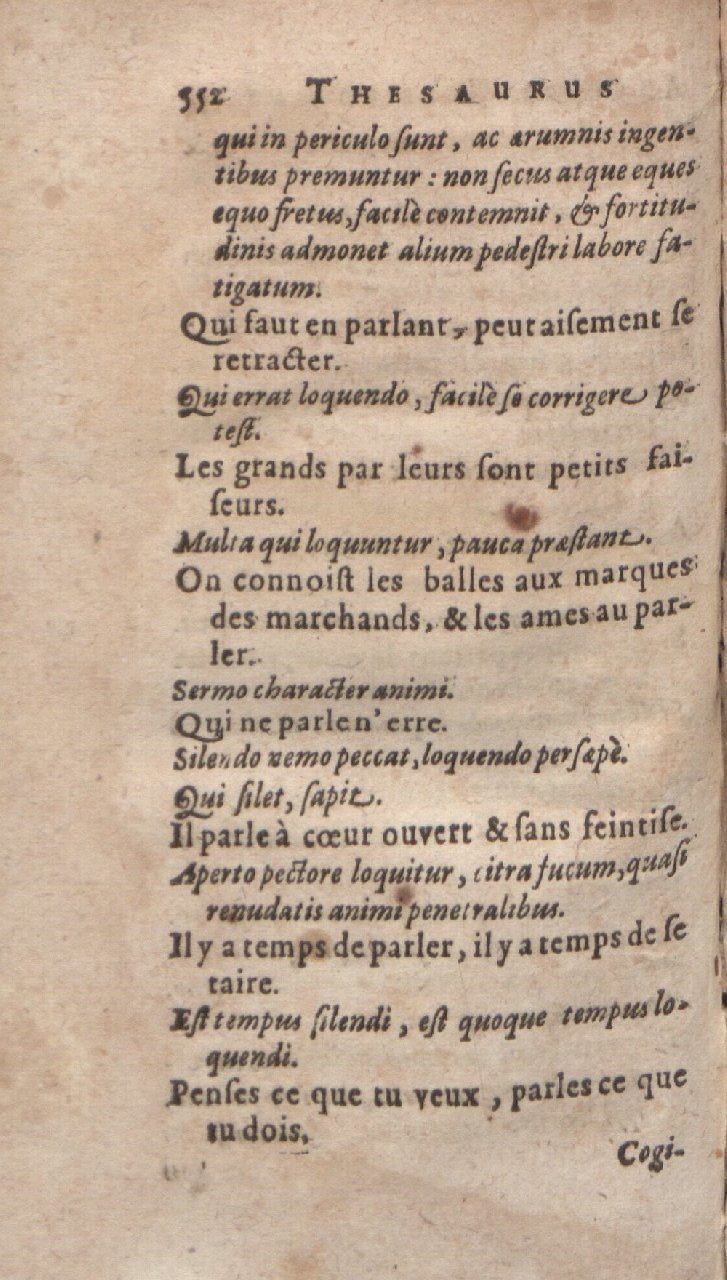 552 THESAURUS
qui in periculo ſunt, ac ærumnis ingen-
tibus premuntur : non ſecus atque eques
equo fretus, facilè contemnit, & fortitu-
dinis admonet alium pedeſtri labore fa-
tigatum.
Qui faut en parlant, peut aiſement ſe
retracter.
Qui errat loquendo, facilè ſe corrigere po-
teſt.
Les grands par leurs ſont petits fai-
ſeurs.
Multa qui loquuntur, pauca præſtant.
On connoiſt les balles aux marques
des marchands, & les ames au par-
ler.
Sermo character animi.
Qui ne parle n'erre.
Silendo nemo peccat, loquendo perſæpè.
Qui ſilet, ſapit.
Il parle à cœur ouvert & ſans feintiſe.
Aperto pectore loquitur, citra fucum, quaſi
renudatis animi penetralibus.
Il y a temps de parler, il y a temps de ſe
taire.
Eſt tempus ſilendi, eſt quoque tempus lo-
quendi.
Penſes ce que tu veux, parles ce que
tu dois.
Cogi-